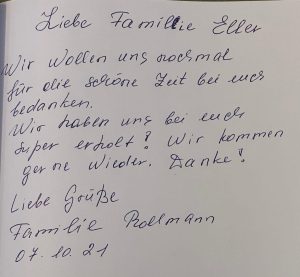 Liebe Famillie Eller
Wir wollen uns nochmal
für die schöne Zeit bei euch
bedanken.
Wir haben uns bei euch
super erholt! Wir kommen
gerne wieder. Danke!
Liebe Grüße
Familie Rollmann
07.10.21